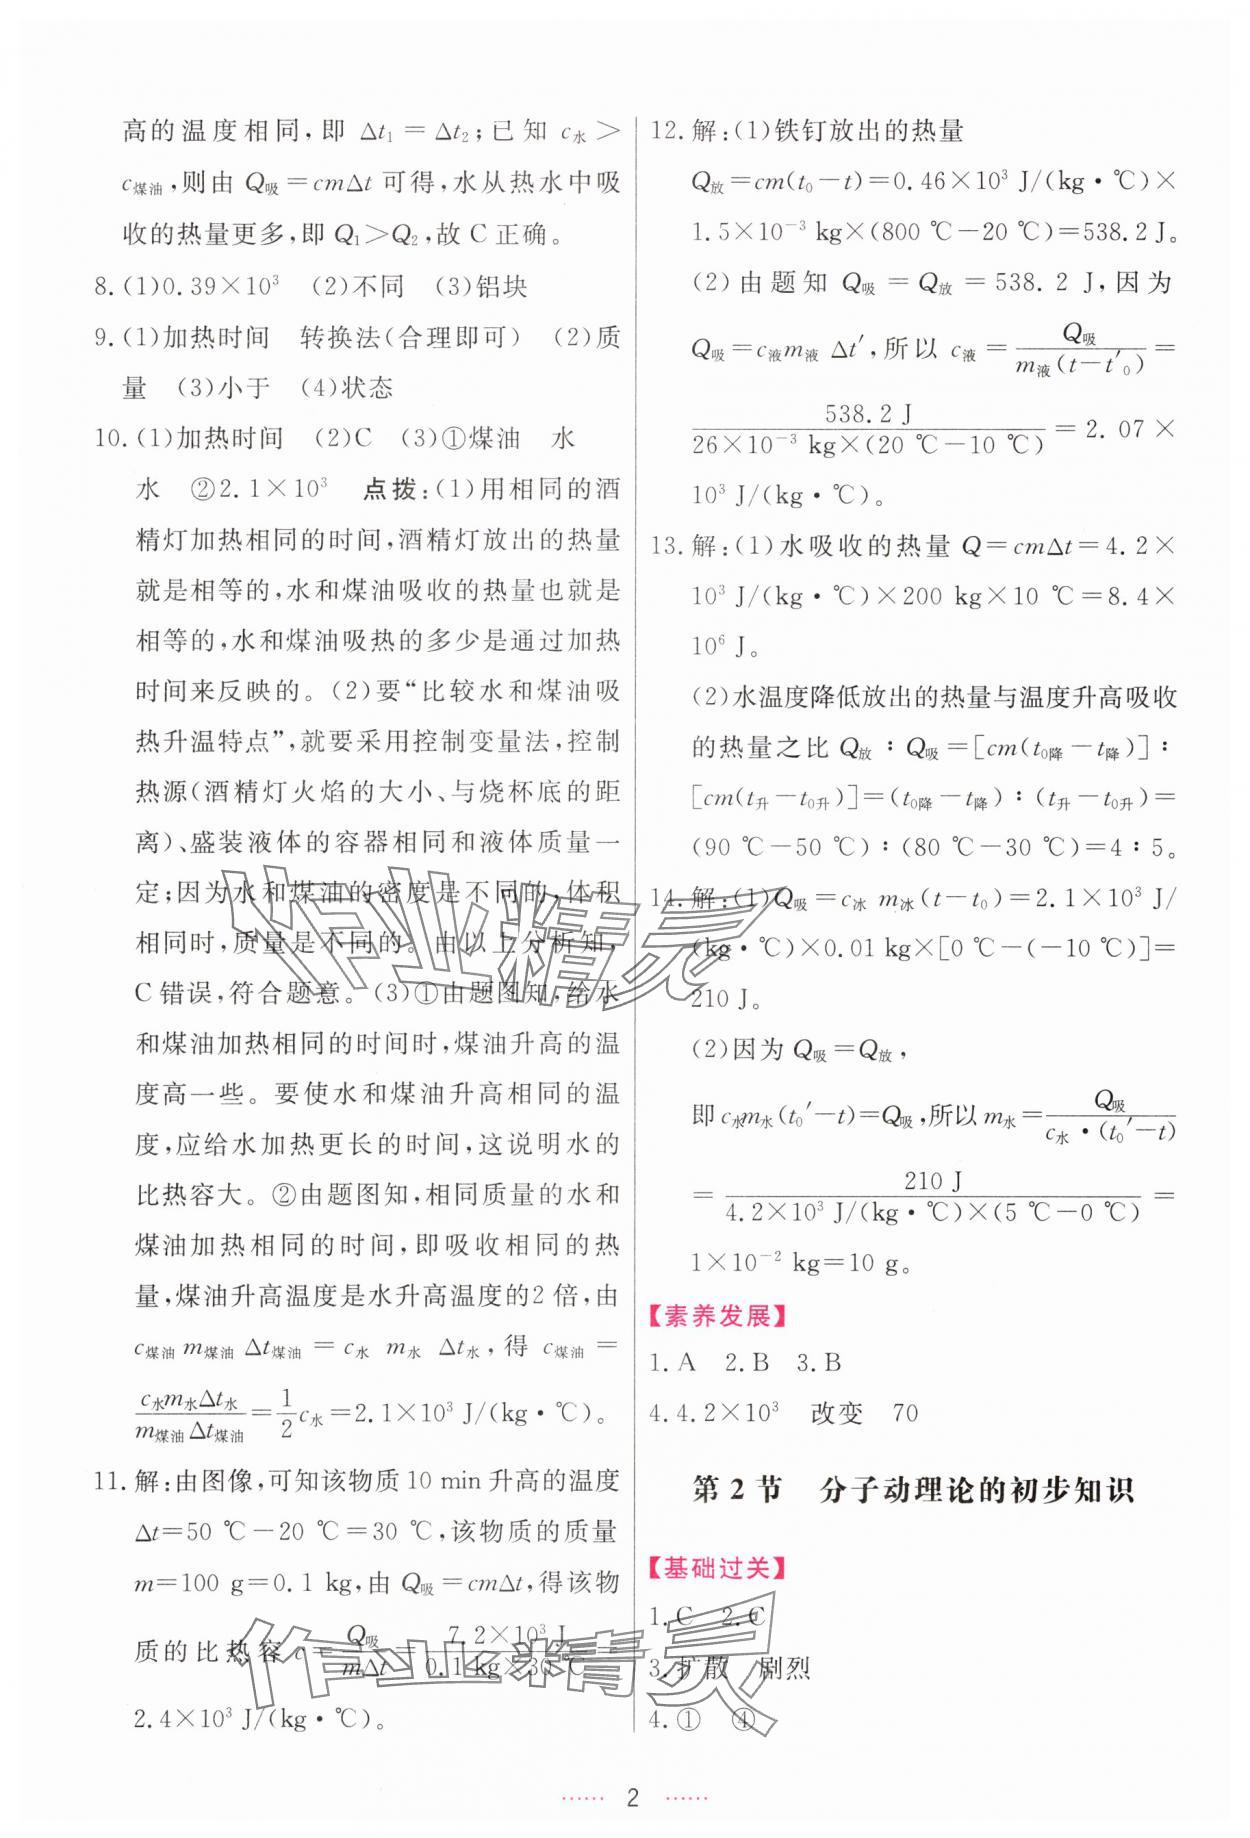 高的温度相同,即 Δt₁=Δt₂;已知 c水>
c煤油,则由 Q吸=cmΔt 可得,水从热水中吸
收的热量更多,即 Q₁>Q₂,故 C 正确。
8.(1)0.39×10³ (2)不同 (3)铝块
9.(1)加热时间 转换法(合理即可) (2)质
量 (3)小于 (4)状态
10.(1)加热时间 (2)C (3)①煤油 水
水 ②2.1×10³ 点拨:(1)用相同的酒
精灯加热相同的时间,酒精灯放出的热量
就是相等的,水和煤油吸收的热量也就是
相等的,水和煤油吸热的多少是通过加热
时间来反映的。(2)要“比较水和煤油吸
热升温特点”,就要采用控制变量法,控制
热源(酒精灯火焰的大小、与烧杯底的距
离)、盛装液体的容器相同和液体质量一
定;因为水和煤油的密度是不同的,体积
相同时,质量是不同的。由以上分析知,
C 错误,符合题意。(3)①由题图知,给水
和煤油加热相同的时间时,煤油升高的温
度高一些。要使水和煤油升高相同的温
度,应给水加热更长的时间,这说明水的
比热容大。②由题图知,相同质量的水和
煤油加热相同的时间,即吸收相同的热
量,煤油升高温度是水升高温度的2 倍,由
c煤油 m煤油 Δt煤油 = c水 m水 Δt水,得 c煤油 =
c水m水Δt水/m煤油Δt煤油=1/2c水=2.1×10³ J/(kg·℃)。
11.解:由图像,可知该物质 10 min 升高的温度
Δt=50 ℃-20 ℃=30 ℃,该物质的质量
m=100 g=0.1 kg,由 Q吸=cmΔt,得该物
质的比热容 c=Q吸/mΔt=7.2×10³ J/0.1 kg×30 ℃=
2.4×10³ J/(kg·℃)。
12.解:(1)铁钉放出的热量
Q放=cm(t₀-t)=0.46×10³ J/(kg·℃)×
1.5×10⁻³ kg×(800 ℃-20 ℃)=538.2 J。
(2)由题知 Q吸=Q放=538.2 J,因为
Q吸=c液m液 Δt′,所以 c液=Q吸/m液(t-t′₀)=
538.2 J/26×10⁻³ kg×(20 ℃-10 ℃)=2.07×
10³ J/(kg·℃)。
13.解:(1)水吸收的热量 Q=cmΔt=4.2×
10³ J/(kg·℃)×200 kg×10 ℃=8.4×
10⁶ J。
(2)水温度降低放出的热量与温度升高吸收
的热量之比 Q放∶Q吸=[cm(t0降-t降)]∶
[cm(t升-t0升)]=(t0降-t降)∶(t升-t0升)=
(90 ℃-50 ℃)∶(80 ℃-30 ℃)=4∶5。
14.解:(1)Q吸=c冰 m冰(t-t₀)=2.1×10³ J/
(kg·℃)×0.01 kg×[0 ℃-(-10 ℃)]=
210 J。
(2)因为 Q吸=Q放,
即 c水m水(t₀′-t)=Q吸,所以 m水=Q吸/c水·(t₀′-t)
=210 J/4.2×10³ J/(kg·℃)×(5 ℃-0 ℃)=
1×10⁻² kg=10 g。
【素养发展】
1.A 2.B 3.B
4.4.2×10³ 改变 70
第 2 节 分子动理论的初步知识
【基础过关】
1.C 2.C
3.扩散 剧烈
4.① ④
作业精灵
作业精灵
······ 2 ······